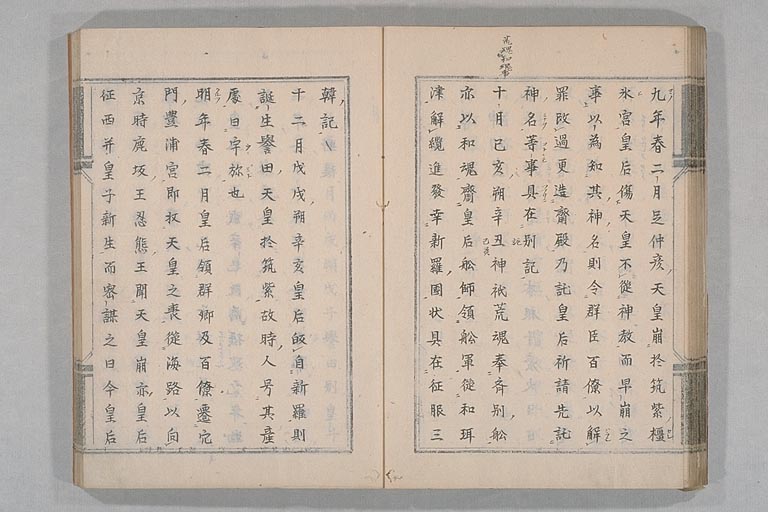 荒魂和魂事
九年春二月足仲彦天皇崩於筑紫橿
氷宮皇后傷天皇不從神教而早崩之
事以為知其神名則令群臣百僚以解
罪改過更造齋殿乃託皇后祈請先託
神名等事具在別記
十月己亥朔辛丑神祇荒魂奉斉別舩
亦以和魂齋皇后舩師領舩軍從和珥
津解纜進發幸新羅國状具在征服三
韓記
十二月戊戌朔辛亥皇后皈自新羅則
誕生譽田天皇於筑紫故時人号其產
處曰宇祢也
明年春二月皇后領群卿及百僚遷穴
門豊浦宮即收天皇之喪從海路以向
京時麛坂王忍熊王聞天皇崩亦皇后
征西并皇子新生而密謀之曰今皇后